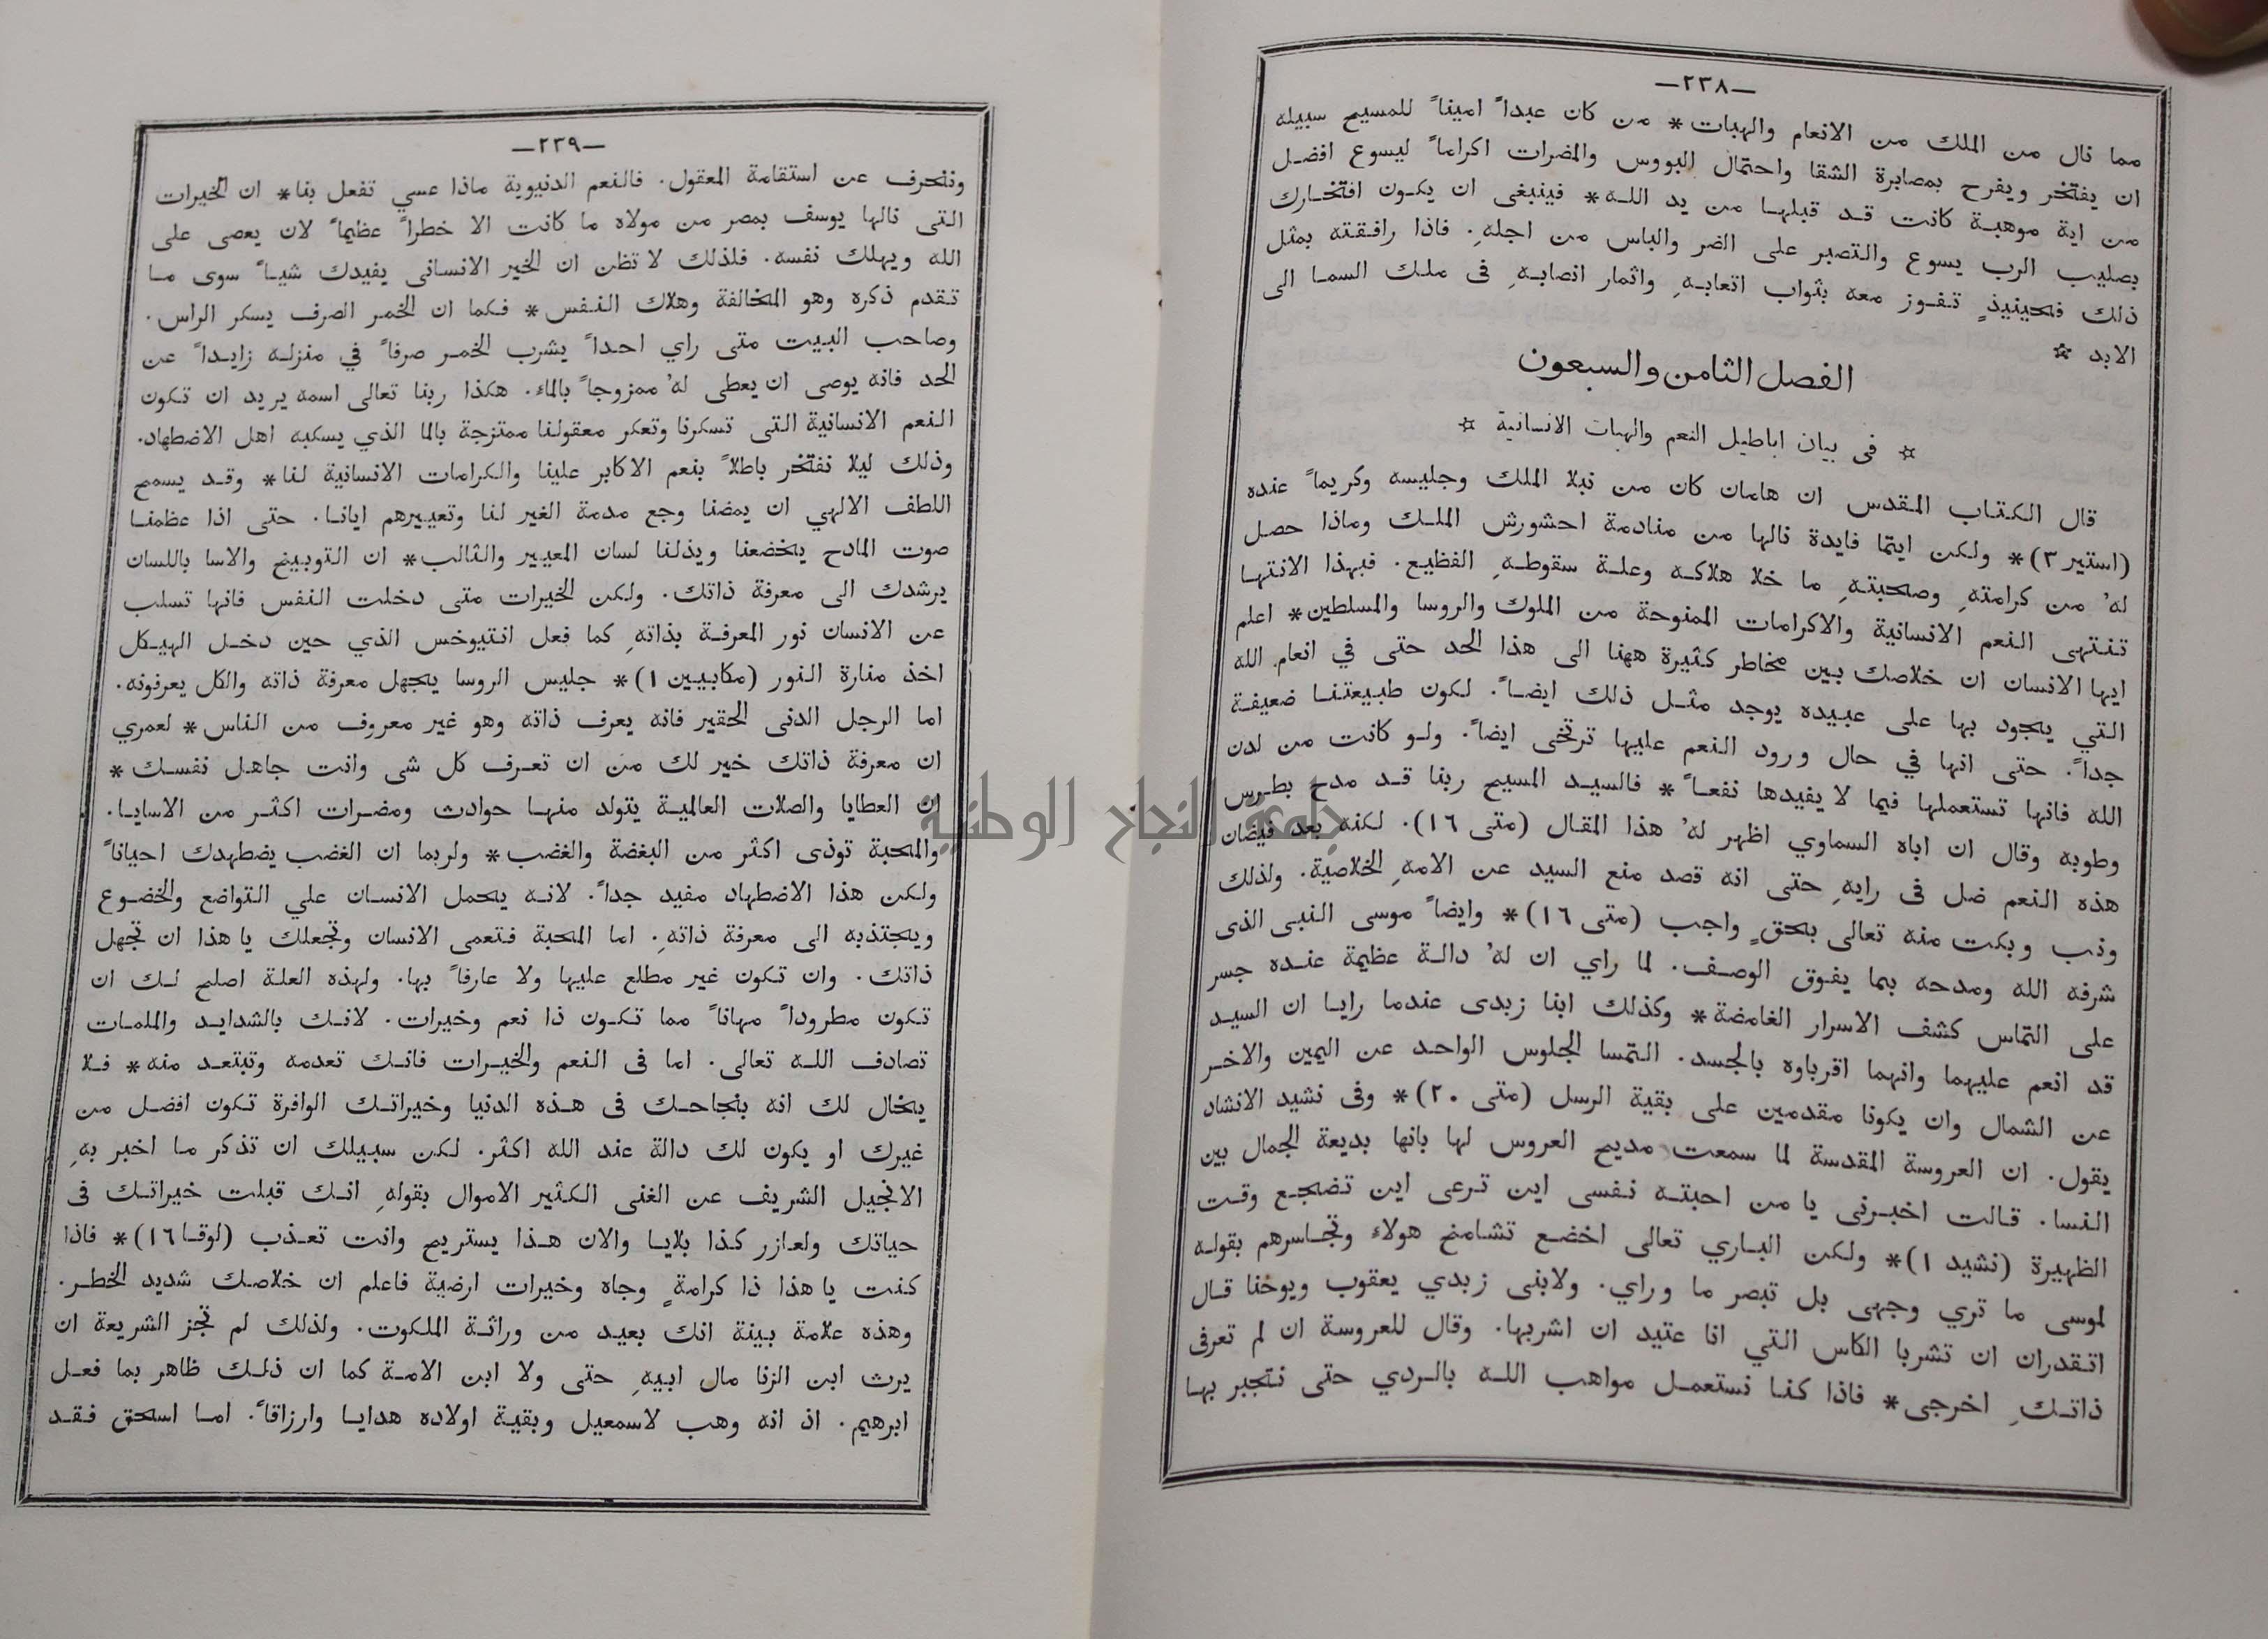 —٢٣٨—
مما نال من الملك من الانعام والهبات* من كان عبداً اميناً للمسيح سبيله
ان يفتخر ويفرح بمصابرة الشقا واحتمال البووس والمضرات اكراماً ليسوع افضـل
من اية موهبـة كانت قـد قبلهـا من يد اللـه* فينبغى ان يكـون افتخـارك
بصليب الرب يسوع والتصبر على الضر والباس من اجلهِ. فاذا رافقته بمثل
ذلك فحينيذٍ تفـوز معه بثواب اتعابـهِ واثمار انصابـهِ فى ملك السمـا الى
الابد ☆
الفصل الثامن والسبعون
☆ فى بيان اباطيل النعم والهبات الانسانية ☆
قال الكتاب المقدس ان هامان كان من نبلا الملك وجليسه وكريماً عنده
(استير ٣)* ولكن ايمّا فايدة نالها من منادمة احشورش الملـك وماذا حصل
له’ من كرامتهِ وصحبتهِ ما خلا هلاكـه وعلـة سقوطـهِ الفظيـع. فبهذا الانتهـا
تنتهى النعم الانسانية والاكرامات الممنوحة من الملوك والروسا والمسلطين* اعلم
ايها الانسان ان خلاصك بـين مخاطر كثيرة ههنا الى هذا الحد حتى في انعام الله
التي يجود بها على عبيده يوجد مثـل ذلك ايضـاً. لكون طبيعتنـا ضعيفـة
جداً. حتى انها في حال ورود النعم عليها ترتخى ايضاً. ولـو كانت من لدن
الله فانها تستعملها فيما لا يفيدها نفعـاً* فالسيـد المسيح ربنا قـد مدح بطرس
وطوبه وقال ان اباه السماوي اظهر له’ هذا المقال (متى ١٦). لكنه بعد فيضان
هذه النعم ضل فى رايهِ حتى انه قصد منع السيد عن الامهِ الخلاصية. ولذلك
وذب وبكت منه تعالى بحقٍ واجب (متى ١٦)* وايضاً موسى النبى الذى
شرفه الله ومدحه بما يفوق الوصـف. لما راي ان له’ دالـة عظيمة عنـده جسر
على التماس كشف الاسرار الغامضة* وكذلك ابنا زبدى عندما رايـا ان السيـد
قد انعم عليهما وانهما اقرباوه بالجسد. التمسا الجلوس الواحد عن اليمين والاخـر
عن الشمال وان يكونا مقدمين على بقية الرسل (متى ٢٠)* وفى نشيد الانشاد
يقول. ان العروسة المقدسة لما سمعت مديح العروس لها بانها بديعة الجمال بين
النسا. قـالت اخبـرنى يا من احبتـه نـفسى اين تـرعى اين تضجـع وقـت
الظهيرة (نشيد ١)* ولكن البـاري تعالى اخضـع تشامخ هولاء وتجـاسرهم بقولـه
لموسى ما تري وجهى بل تبصر ما وراي. ولابنى زبدي يعقوب ويوحنا قـال
اتـقدران ان تشربا الكاس التي انا عتيد ان اشربها. وقال للعروسة ان لم تعرفى
ذاتـكِ اخرجى* فاذا كنـا نستعمـل مواهب اللـه بالـردي حتى نتجبر بهـا
—٢٣٩—
وننحرف عن استقامة المعقول. فالنعم الدنيوية ماذا عسي تفعل بنا* ان الخيرات
التى نالها يوسف بمصر من مولاه ما كانت الا خطراً عظيماً لان يعصى على
الله ويهلك نفسه. فلذلك لا تظن ان الخير الانسانى يفيدك شيـاً سوى مـا
تـقدم ذكره وهو المخالفة وهلاك النـفس* فـكما ان الخمر الصرف يسكر الراس.
وصاحب البيت متى راي احداً يشرب الخمـر صرفاً في منزلـه زايـداً عن
الحد فانه يوصى ان يعطى له’ ممزوجاً بالماء. هكذا ربنا تعالى اسمه يريد ان تكون
النعم الانسانية التى تسكرنا وتعكر معقولنا ممتزجة بالما الذي يسكبه اهل الاضطهاد.
وذلك ليلا نفتخر باطلاً بنعم الاكابر علينا والكرامات الانسانية لنا* وقـد يسمح
اللطف الالهي ان يمضنا وجع مدمة الغير لنا وتعييرهم ايانـا. حتى اذا عظمنـا
صوت المادح يخضعنا ويذلنا لسان المعيير والثالب* ان التوبيخ والاسا باللسان
يرشدك الى معرفة ذاتك. ولكن الخيرات متى دخلت النفس فانها تسلب
عن الانسان نور المعرفـة بذاتهِ كما فعل انتيوخس الذي حين دخـل الهيـكل
اخذ منارة النور (مكابيـين ١)* جليس الروسا يجهل معرفة ذاته والكل يعرفونه.
اما الرجل الدنى الحقير فانه يعرف ذاته وهو غير معروف من الناس* لعمري
ان معرفة ذاتك خير لك من ان تعـرف كل شى وانت جاهـل نفسـك*
ان العطايا والصلات العالميـة يتولد منهـا حوادث ومضرات اكثـر من الاسايـا.
والمحبة توذى اكثر من البغضة والغضب* ولربما ان الغضب يضطهدك احياناً
ولكن هذا الاضطهاد مفيد جداً. لانـه يحمل الانسـان علي التواضع والخضـوع
ويجتذبه الى معرفة ذاتهِ. اما المحبة فـتعمى الانسان وتجعلك يا هذا ان تجهل
ذاتك. وان تكون غير مطلع عليها ولا عارفاً بها. ولهذه العلة اصلح لـك ان
تكون مطروداً مهاناً مما تكـون ذا نعم وخيرات. لانـك بالشدايـد والملمـات
تصادف اللـه تعالى. اما فى النعم والخيـرات فانـك تعدمه وتبتعـد منه* فـلا
يخال لك انه بنجاحـك فى هـذه الدنيا وخيراتـك الوافرة تـكون افضـل من
غيرك او يكون لك دالة عند الله اكثر. لكن سبيلك ان تذكر مـا اخبر بهِ
الانجيل الشريف عن الغنى الكثير الاموال بقولهِ انـك قبلت خيراتـك فى
حياتك ولعازر كـذا بلايـا والان هـذا يستريح وانت تعـذب (لوقـا١٦)* فاذا
كنت يا هذا ذا كرامةٍ وجاه وخيرات ارضية فاعلم ان خلاصـك شديد الخطـر.
وهذه علامة بينة انك بعيـد من وراثـة الملكوت. ولذلك لم تجز الشريعة ان
يرث ابن الزنا مال ابيهِ حتى ولا ابن الامـة كما ان ذلـك ظاهر بما فعـل
ابرهيم. اذ انه وهب لاسمعيل وبقيـة اولاده هدايـا وارزاقـاً. امـا اسحق فـقـد
جامعة النجاح الوطنية